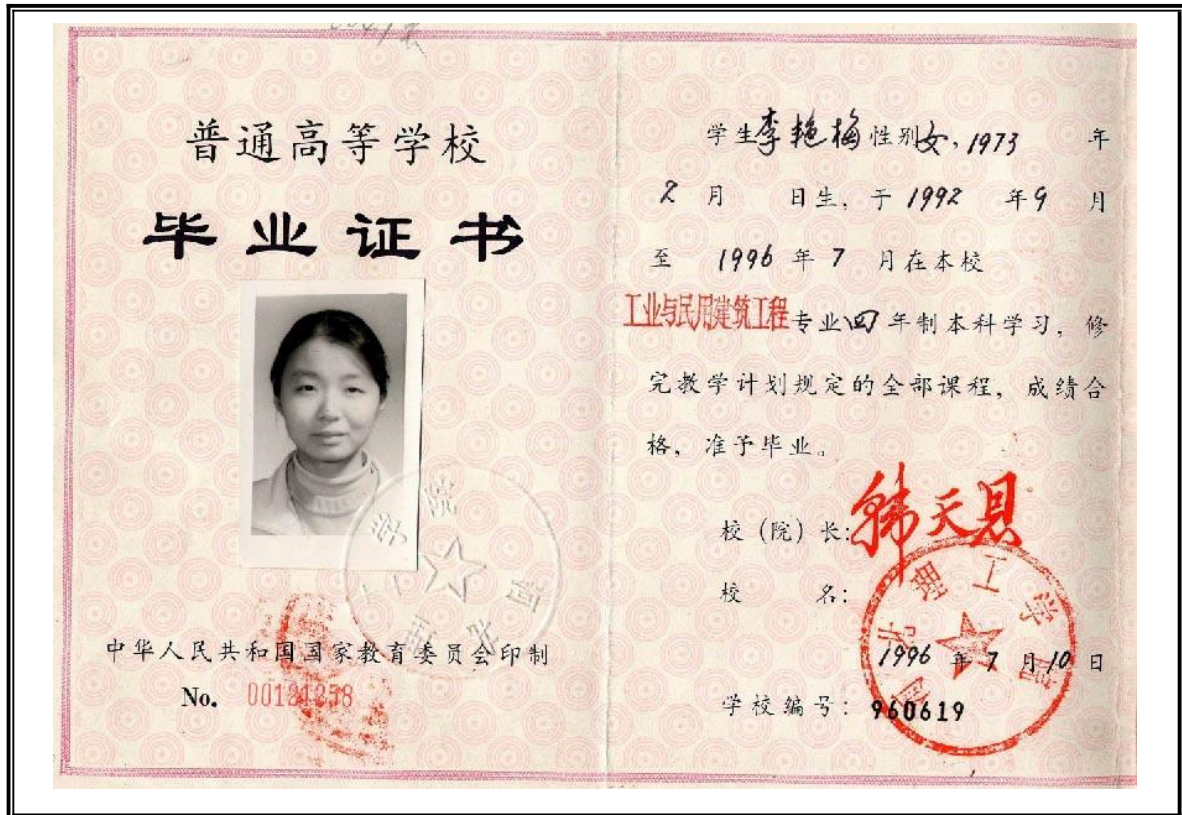 普通高等学校
毕业证书
中华人民共和国国家教育委员会印制
No. 00121258
学生李艳梅性别女,1973 年
2月 日生,于1992 年9 月
至 1996年7 月在本校
工业与民用建筑工程专业四年制本科学习,修
完教学计划规定的全部课程,成绩合
格,准予毕业。
校(院)长:韩天恩
校 名:
理工学院
1996年7月10日
学校编号:960619